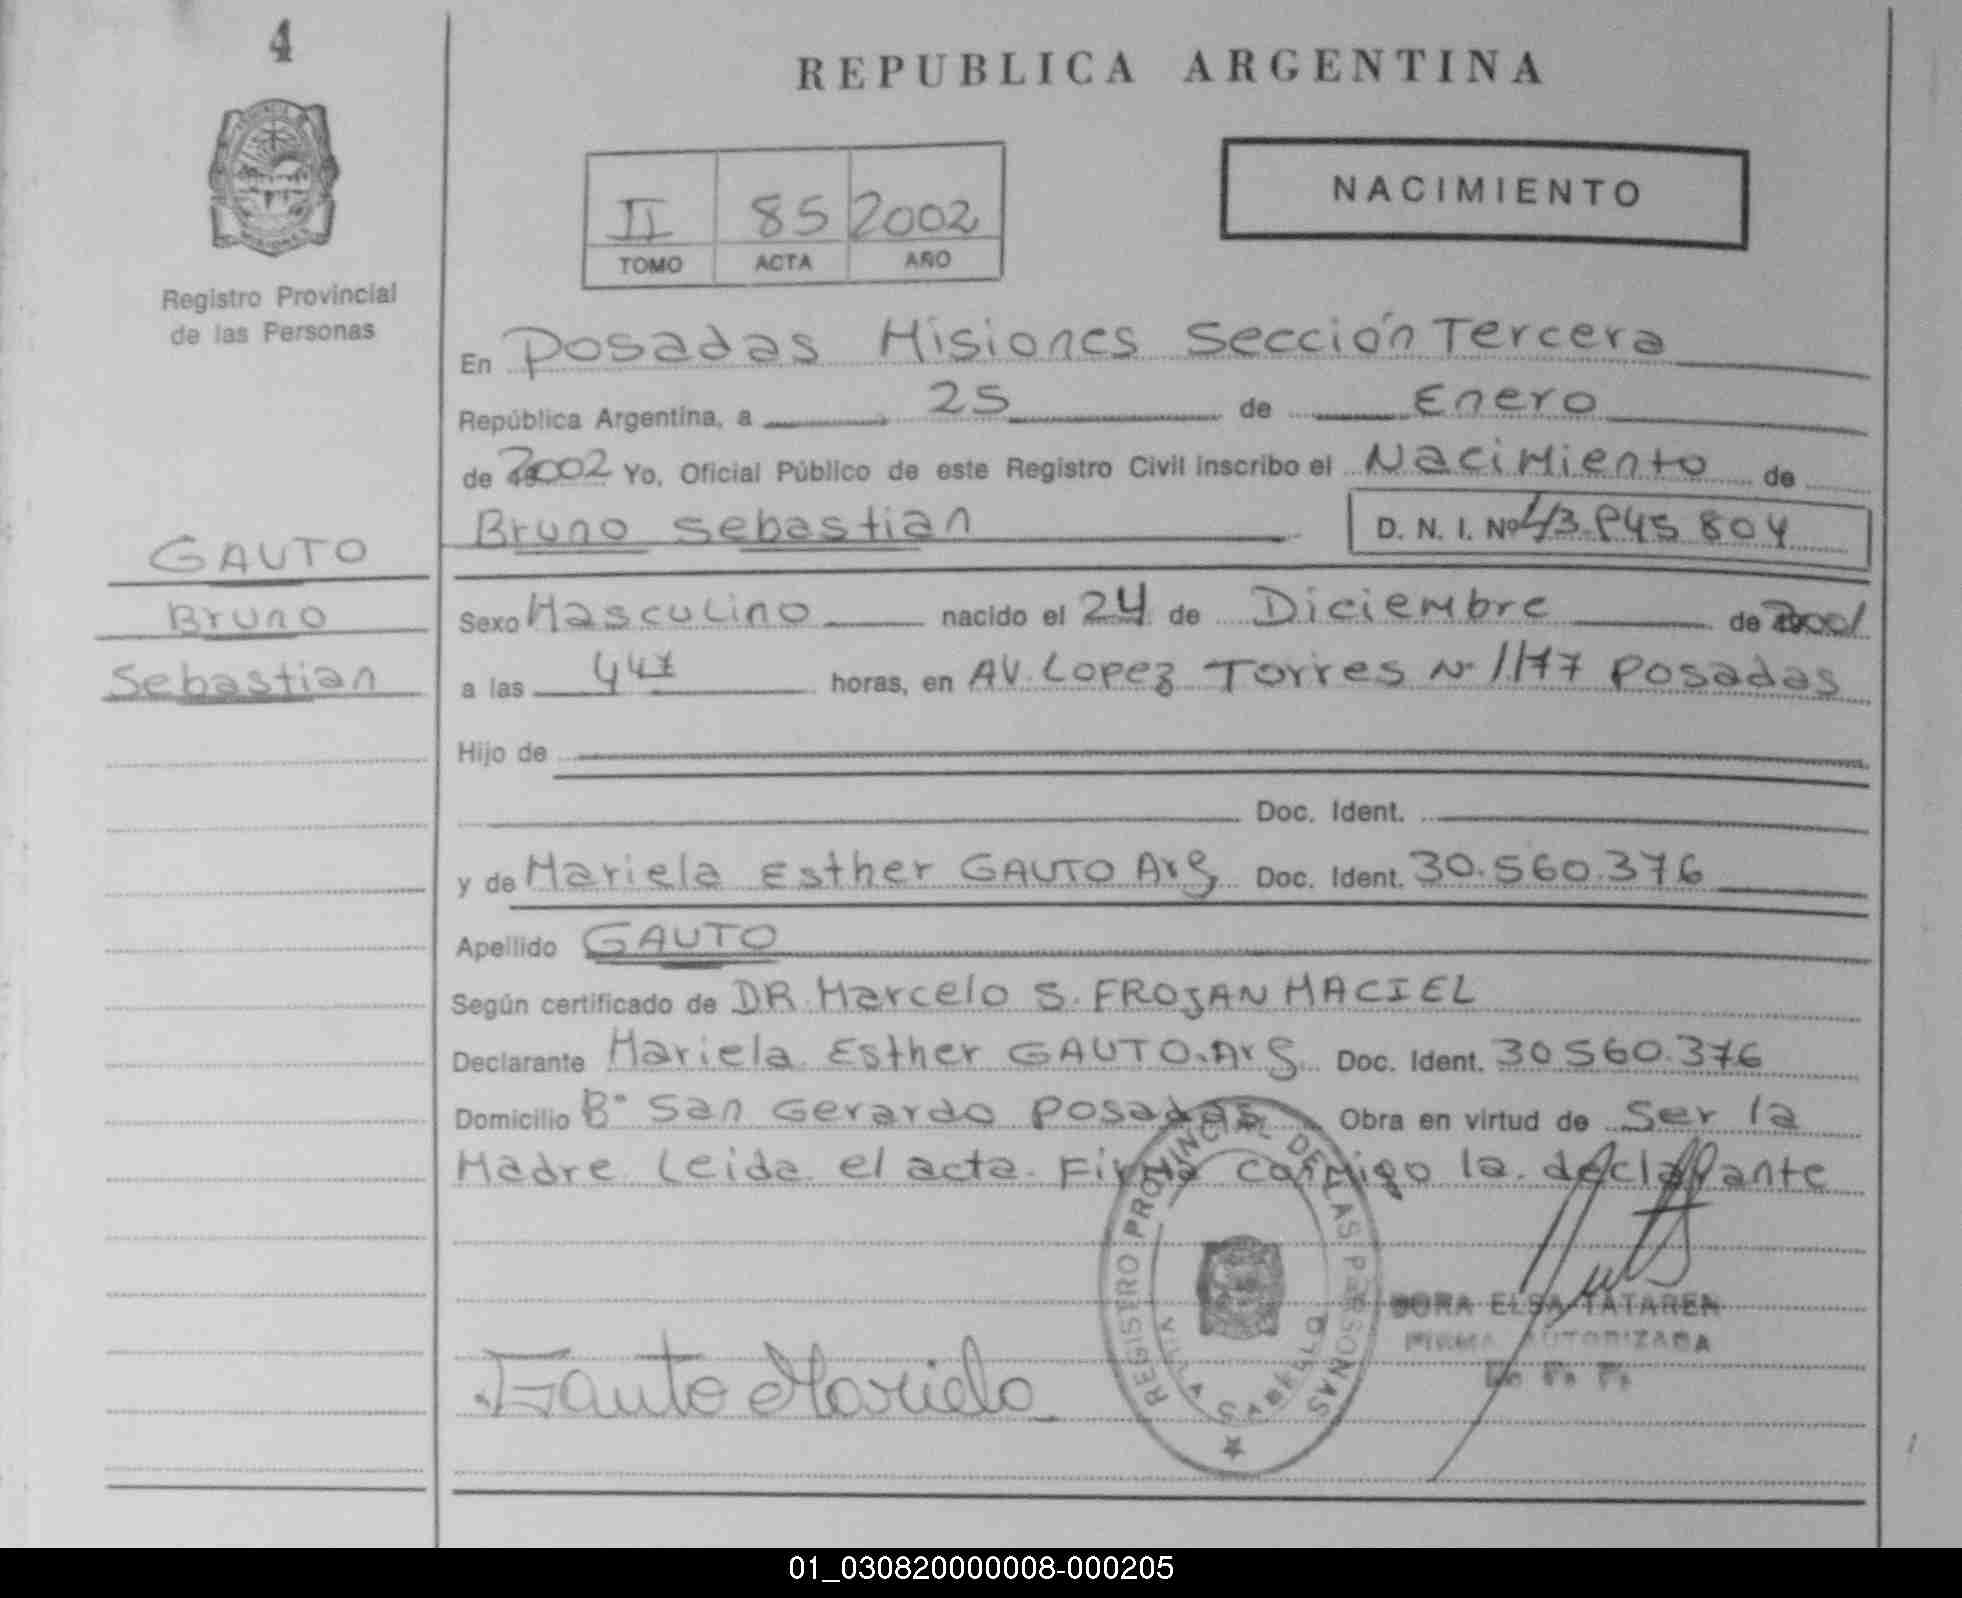 4
REPUBLICA ARGENTINA
NACIMIENTO
II 85 2002
TOMO ACTA AÑO
Registro Provincial
de las Personas
En Posadas Misiones Sección Tercera
República Argentina, a 25 de Enero
de 2002 Yo, Oficial Público de este Registro Civil inscribo el Nacimiento de
Bruno Sebastian D. N. I. Nº 43.845 804
GAUTO
Bruno
Sebastian
Sexo Masculino nacido el 24 de Diciembre de 2001
a las 4 47 horas, en AV. Lopez Torres Nº 1177 Posadas
Hijo de
Doc. Ident.
y de Mariela Esther GAUTO Arg Doc. Ident. 30.560.376
Apellido GAUTO
Según certificado de DR Marcelo S. FROJAN MACIEL
Declarante Mariela Esther GAUTO. Arg Doc. Ident. 30 560.376
Domicilio Bº San Gerardo Posadas Obra en virtud de Ser la
Madre Leida el acta Firma conmigo la declarante
REGISTRO PROVINCIAL DE LAS PERSONAS
VILLA CABELLO
DORA ELSA TATAREN
FIRMA AUTORIZADA
Gauto Mariela
01_030820000008-000205